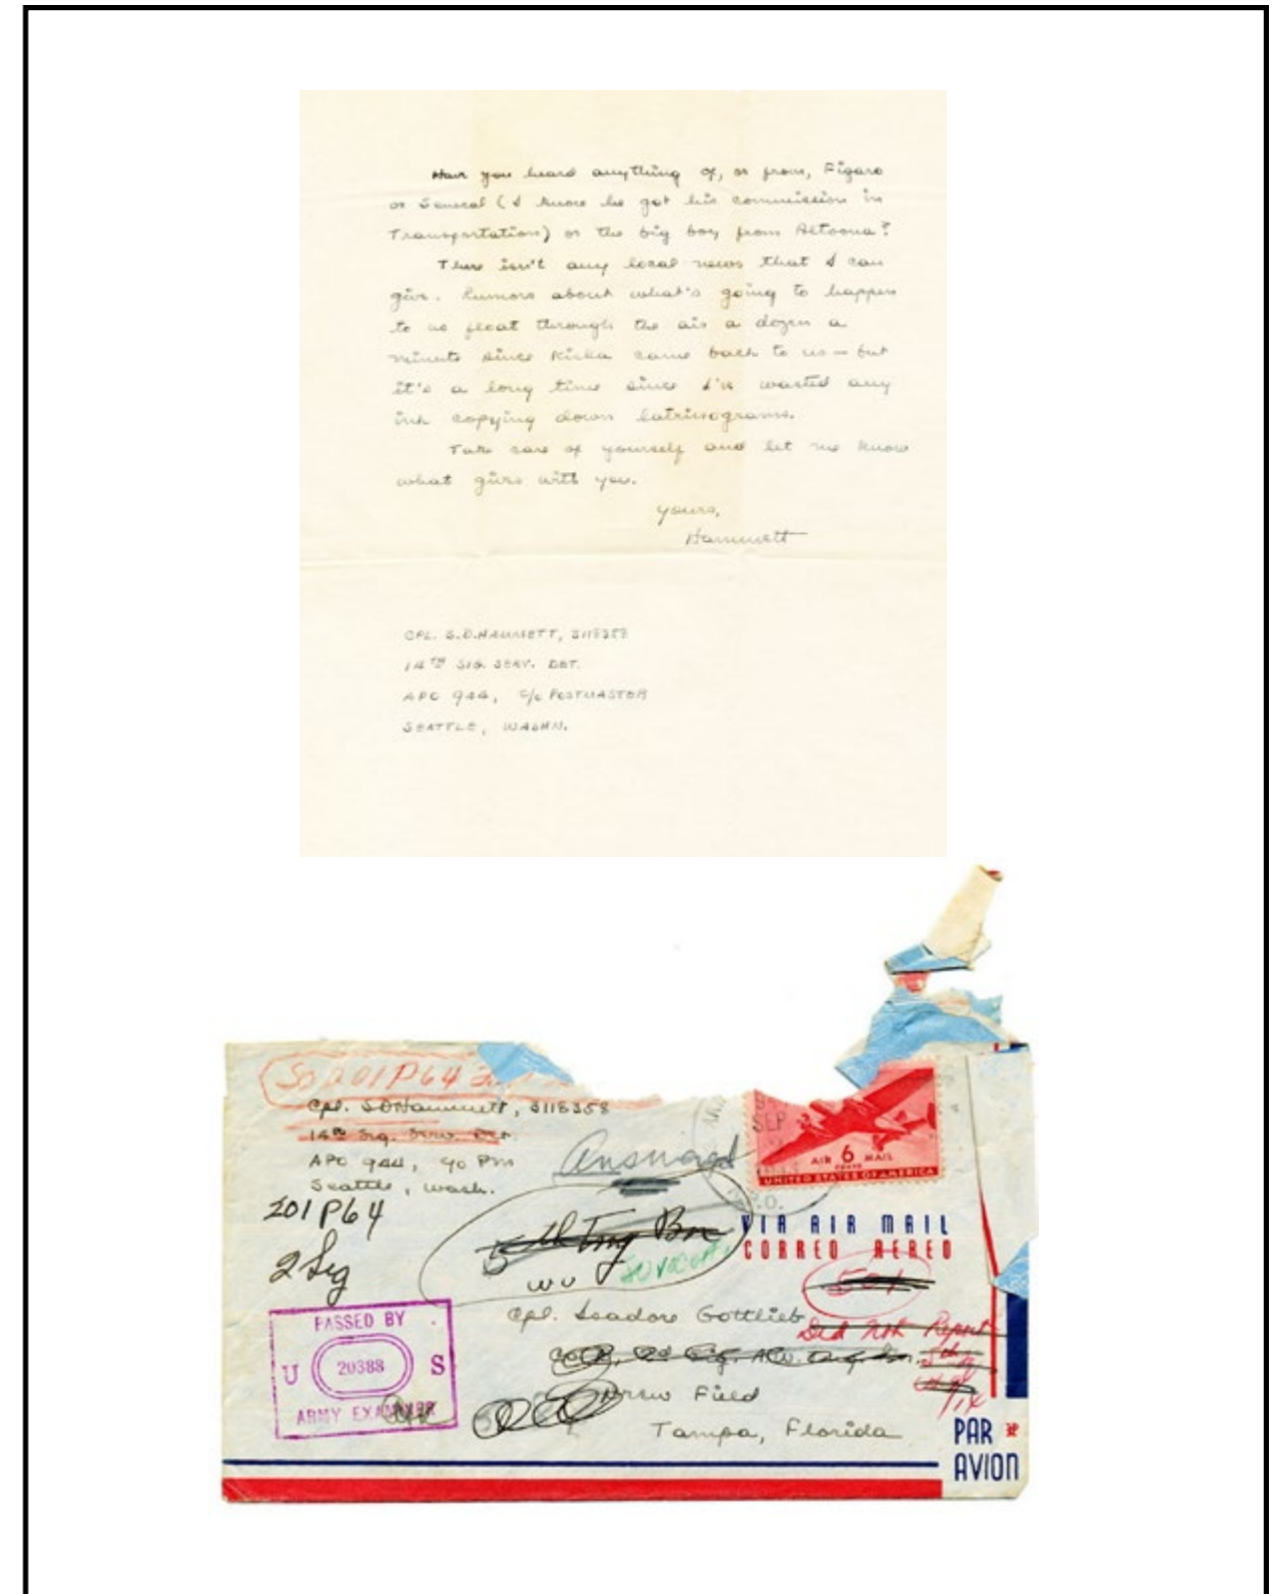 Have you heard anything of, or from, Figaro
or General (I know he got his commission in
Transportation) or the big boy from Altoona?
There isn't any local news that I can
give. Rumors about what's going to happen
to us float through the air a dozen a
minute since Kiska came back to us — but
it's a long time since I've wasted any
ink copying down latrinograms.
Take care of yourself and let me know
what gives with you.
Yours,
Hammett
CPL. S.D. HAMMETT, 3118358
14TH SIG. SERV. DET.
APO 944, c/o POSTMASTER
SEATTLE, WASHN.
SO 201P64
Cpl. SDHammett, 3118358
14th Sig. Serv. Det.
APO 944, c/o Pm
Seattle, Wash.
Answered
201P64
2 Sig
SEP
AIR 6 MAIL
CENTS
UNITED STATES OF AMERICA
VIA AIR MAIL
CORREO AEREO
5th Tng Bn
WU
501
Cpl. Isadore Gottlieb
Did Not Report
Drew Field
Tampa, Florida
PASSED BY
U 20388 S
ARMY EXAMINER
PAR
AVION